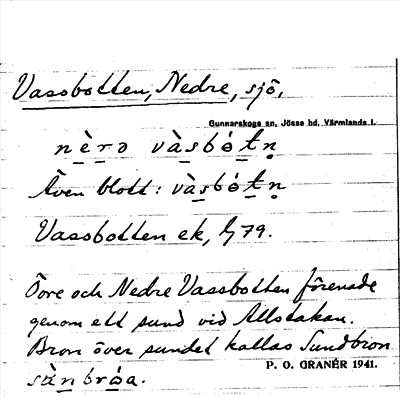 Vassbotten, Nedre, sjö,
Gunnarskogs sn, Jösse hd, Värmlands l.
nèrə vàsbótn̥
Även blott: vàsbótn̥
Vassbotten ek, G79.
Övre och Nedre Vassbotten förenade
genom ett sund vid Allstakan.
Bron över sundet kallas Sundbron
sùnbróa.
P. O. GRANÉR 1941.